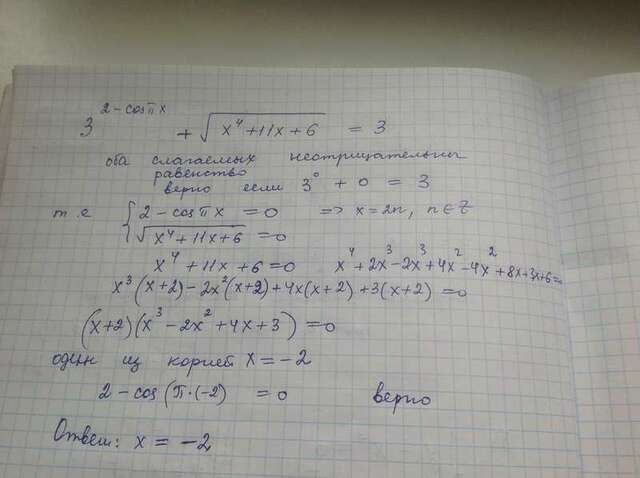 3^(2 - cos πx) + √(x⁴ + 11x + 6) = 3
оба слагаемых неотрицательны
равенство
верно если 3⁰ + 0 = 3
т.е { 2 - cos πx = 0 => x = 2n, n ∈ Z
√(x⁴ + 11x + 6) = 0
x⁴ + 11x + 6 = 0 x⁴ + 2x³ - 2x³ + 4x² - 4x² + 8x + 3x + 6 = 0
x³(x + 2) - 2x²(x + 2) + 4x(x + 2) + 3(x + 2) = 0
(x + 2)(x³ - 2x² + 4x + 3) = 0
один из корней x = -2
2 - cos(π·(-2)) = 0 верно
Ответ: x = -2